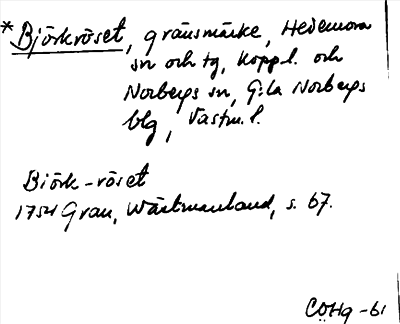 *Björkröset, gränsmärke, Hedemora
sn och tg, Koppl. och
Norbergs sn, G:la Norbergs
blg, Västm.l.
Björk-röset
1754 Grau, Wästmanland, s. 67.
CÖHg -61